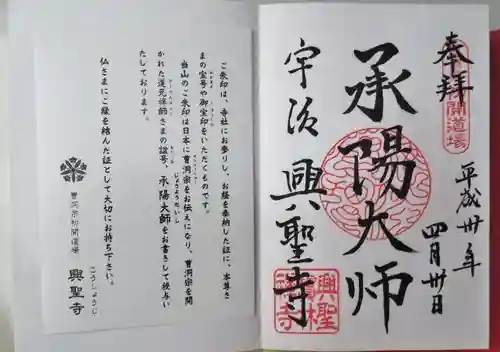 ご朱印は、寺社にお参りし、お経を奉納した証に、本尊さ
まの宝号や御宝印をいただくものです。
当山のご朱印は日本に曹洞宗をお伝えになり、曹洞宗を開
かれた道元禅師さまの諡号、承陽大師をお書きして授与い
じょうようだいし
たしております。
仏さまにご縁を結んだ証として大切にお持ち下さい。
曹洞宗初開道場
興聖寺
こうしょうじ
奉拝
開道場
平成卅年
四月卅日
承陽大师
宇治 興聖寺